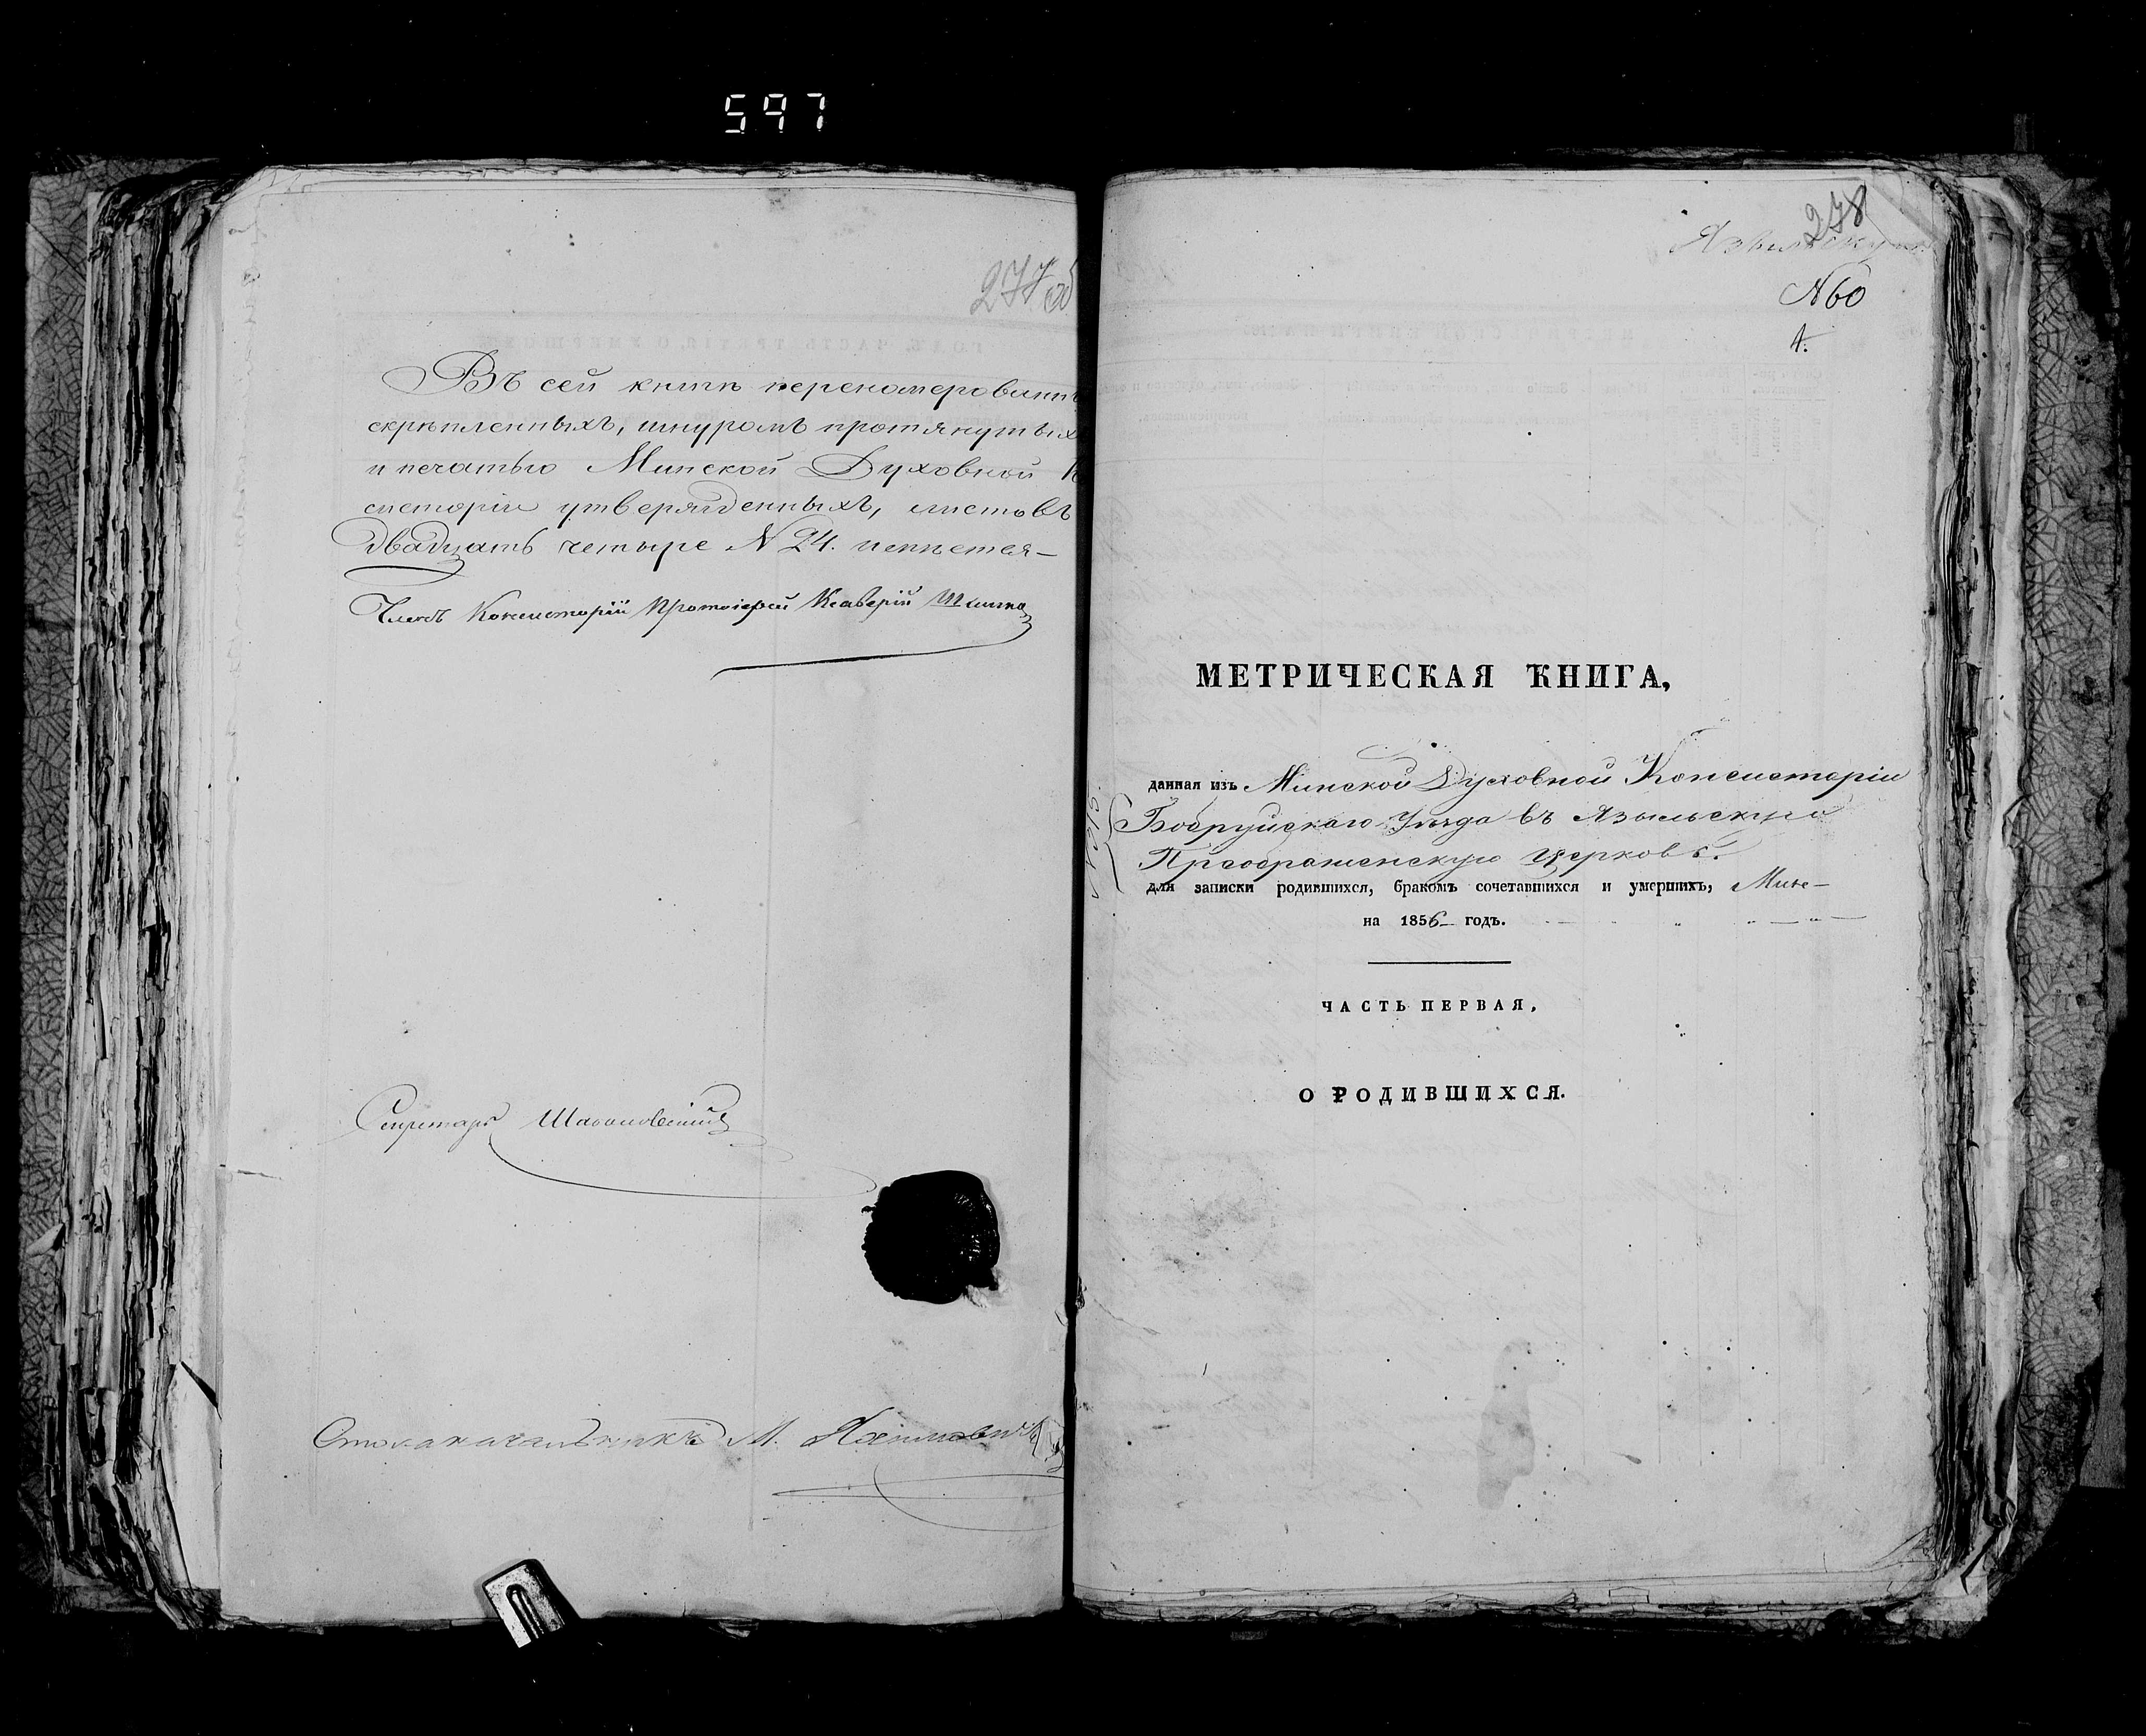 597
277об
Въ сей книгѣ переномерованны
скрѣпленныхъ, шнуромъ протянутых
и печатью Минской Духовной К
систоріи утвержденныхъ, листовъ
двадцать четыре N 24. имѣется—
Членъ Консисторіи Протоіерей Ксаверій
Секретарь
Столоначальникъ М.
278
Язвильскую
N60
1.
МЕТРИЧЕСКАЯ КНИГА,
данная изъ Минской Духовной Консисторіи
Бобруйскаго Уѣзда въ Языльскую
Преображенскую церковь.
для записки родившихся, бракомъ сочетавшихся и умершихъ,
на 1856 годъ.
ЧАСТЬ ПЕРВАЯ,
О РОДИВШИХСЯ.